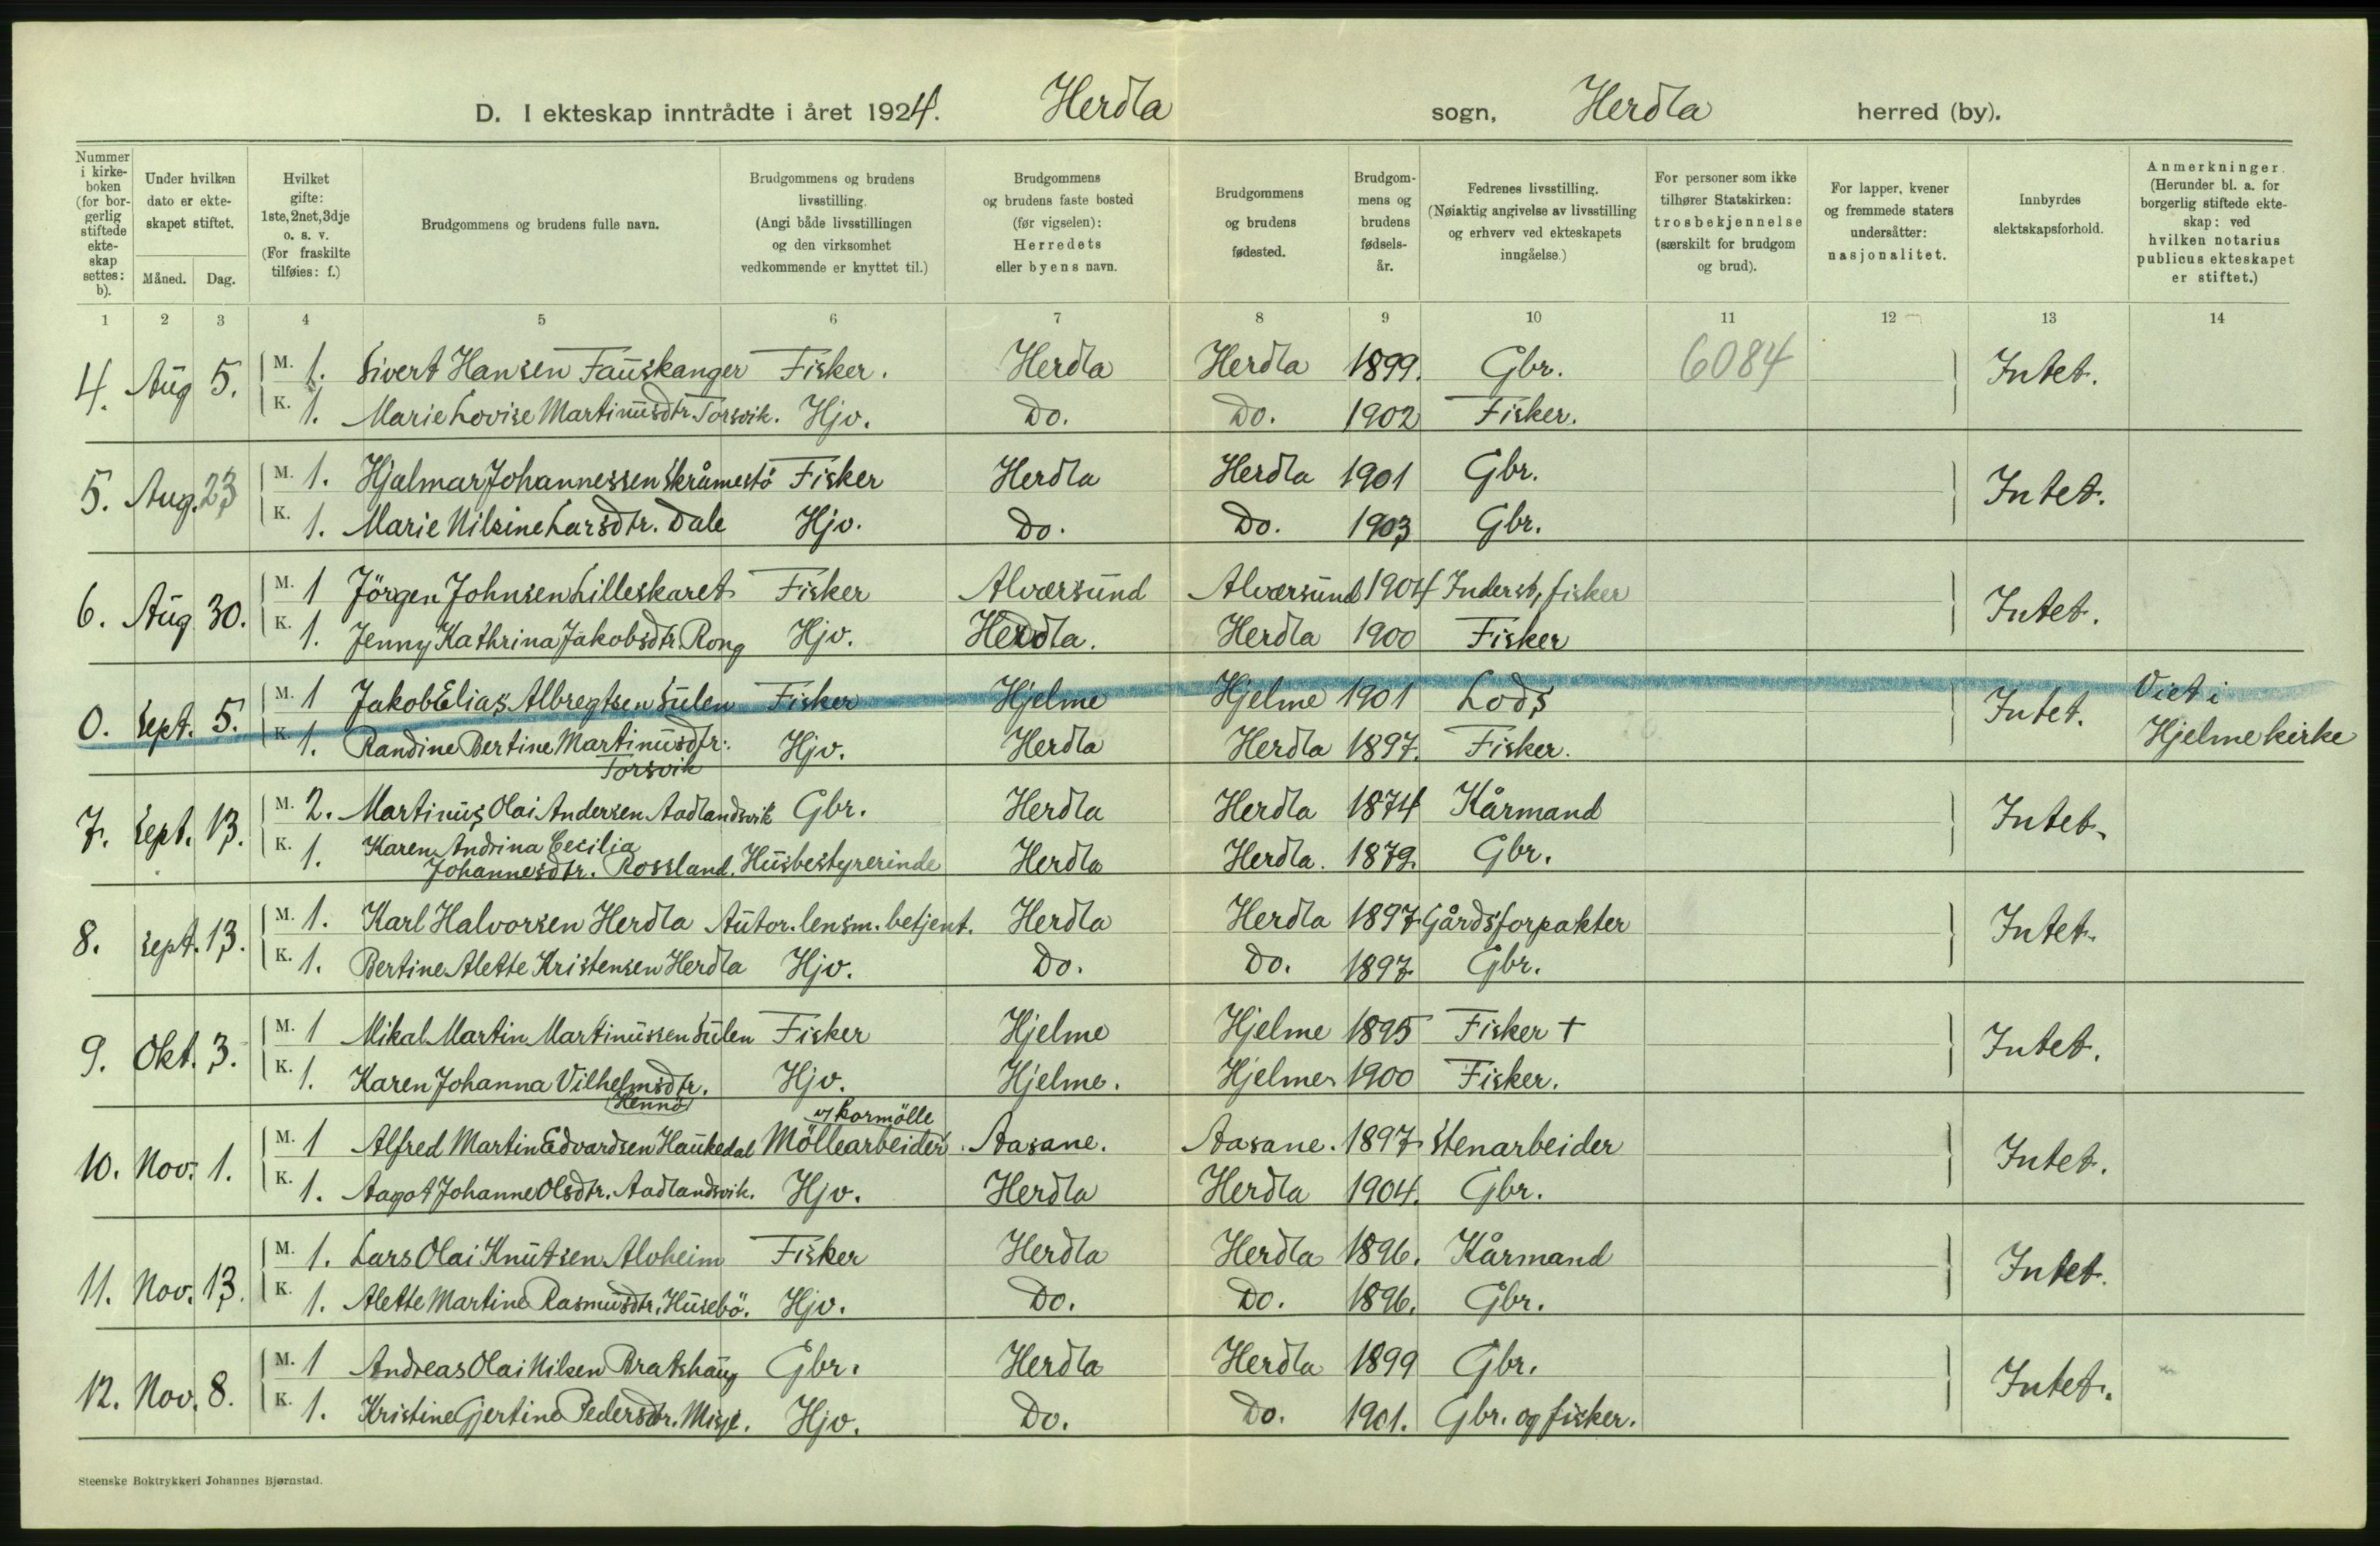 D. I ekteskap inntrådte i året 1924. Herdla sogn, Herdla herred (by).
Nummer i kirke- boken (for bor- gerlig stiftede ekte- skap settes: b).
Under hvilken dato er ekte- skapet stiftet.
Måned. Dag.
Hvilket gifte: 1ste, 2net, 3dje o. s. v. (For fraskilte tilføies: f.)
Brudgommens og brudens fulle navn.
Brudgommens og brudens livsstilling. (Angi både livsstillingen og den virksomhet vedkommende er knyttet til.)
Brudgommens og brudens faste bosted (før vigselen): Herredets eller byens navn.
Brudgommens og brudens fødested.
Brudgom- mens og brudens fødsels- år.
Fedrenes livsstilling. (Nøiaktig angivelse av livsstilling og erhverv ved ekteskapets inngåelse.)
For personer som ikke tilhører Statskirken: trosbekjennelse (særskilt for brudgom og brud).
For lapper, kvener og fremmede staters undersåtter: nasjonalitet.
Innbyrdes slektskapsforhold.
Anmerkninger. (Herunder bl. a. for borgerlig stiftede ekte- skap: ved hvilken notarius publicus ekteskapet er stiftet.)
1 2 3 4 5 6 7 8 9 10 11 12 13 14
4. Aug 5. M. 1. Sivert Hansen Fauskanger Fisker. Herdla Herdla 1899. Gbr. 6084 Intet.
K. 1. Marie Lovise Martinusdtr. Torsvik. Hjv. Do. Do. 1902 Fisker.
5. Aug. 23 M. 1. Hjalmar Johannessen Skråmestö Fisker Herdla Herdla 1901 Gbr. Intet.
K. 1. Marie Nilsine Larsdtr. Dale Hjv. Do. Do. 1903 Gbr.
6. Aug 30. M. 1 Jörgen Johnsen Lilleskaret Fisker Alværsund Alværsund 1904 Inderst, fisker Intet.
K. 1. Jenny Kathrina Jakobsdtr. Rong Hjv. Herdla. Herdla 1900 Fisker
0. Sept. 5. M. 1 Jakob Elias Albregtsen Sulen Fisker Hjelme Hjelme 1901 Lods Intet. Viet i
K. 1. Randine Bertine Martinusdtr. Hjv. Herdla Herdla 1897. Fisker. Hjelme kirke
Torsvik
7. Sept. 13. M. 2. Martinus Olai Andersen Aadlandsvik Gbr. Herdla Herdla 1874 Kårmand Intet.
K. 1. Karen Andrina Cecilia
Johannesdtr. Rossland. Husbestyrerinde Herdla Herdla. 1879. Gbr.
8. Sept. 13. M. 1. Karl Halvorsen Herdla Autor. lensm. betjent. Herdla Herdla 1897 Gårdsforpakter Intet.
K. 1. Bertine Alette Kristensen Herdla Hjv. Do. Do. 1897 Gbr.
9. Okt. 3. M. 1 Mikal Martin Martinussen Sulen Fisker Hjelme Hjelme 1895 Fisker † Intet.
K. 1. Karen Johanna Vilhelmsdtr. Hjv. Hjelme. Hjelme 1900 Fisker.
Hennö
v/ kormölle
10. Nov. 1. M. 1 Alfred Martin Edvardsen Haukedal Möllearbeider. Aasane. Aasane. 1897 Stenarbeider Intet.
K. 1. Aagot Johanne Olsdtr. Aadlandsvik. Hjv. Herdla Herdla 1904. Gbr.
11. Nov. 13. M. 1. Lars Olai Knutsen Alvheim Fisker Herdla Herdla 1896. Kårmand Intet.
K. 1. Alette Martine Rasmusdtr. Husebö. Hjv. Do. Do. 1896. Gbr.
12. Nov. 8. M. 1 Andreas Olai Nilsen Bratshaug Gbr. Herdla Herdla 1899 Gbr. Intet.
K. 1. Kristine Gjertine Pedersdtr. Misje. Hjv. Do. Do. 1901. Gbr. og fisker.
Steenske Boktrykkeri Johannes Bjørnstad.